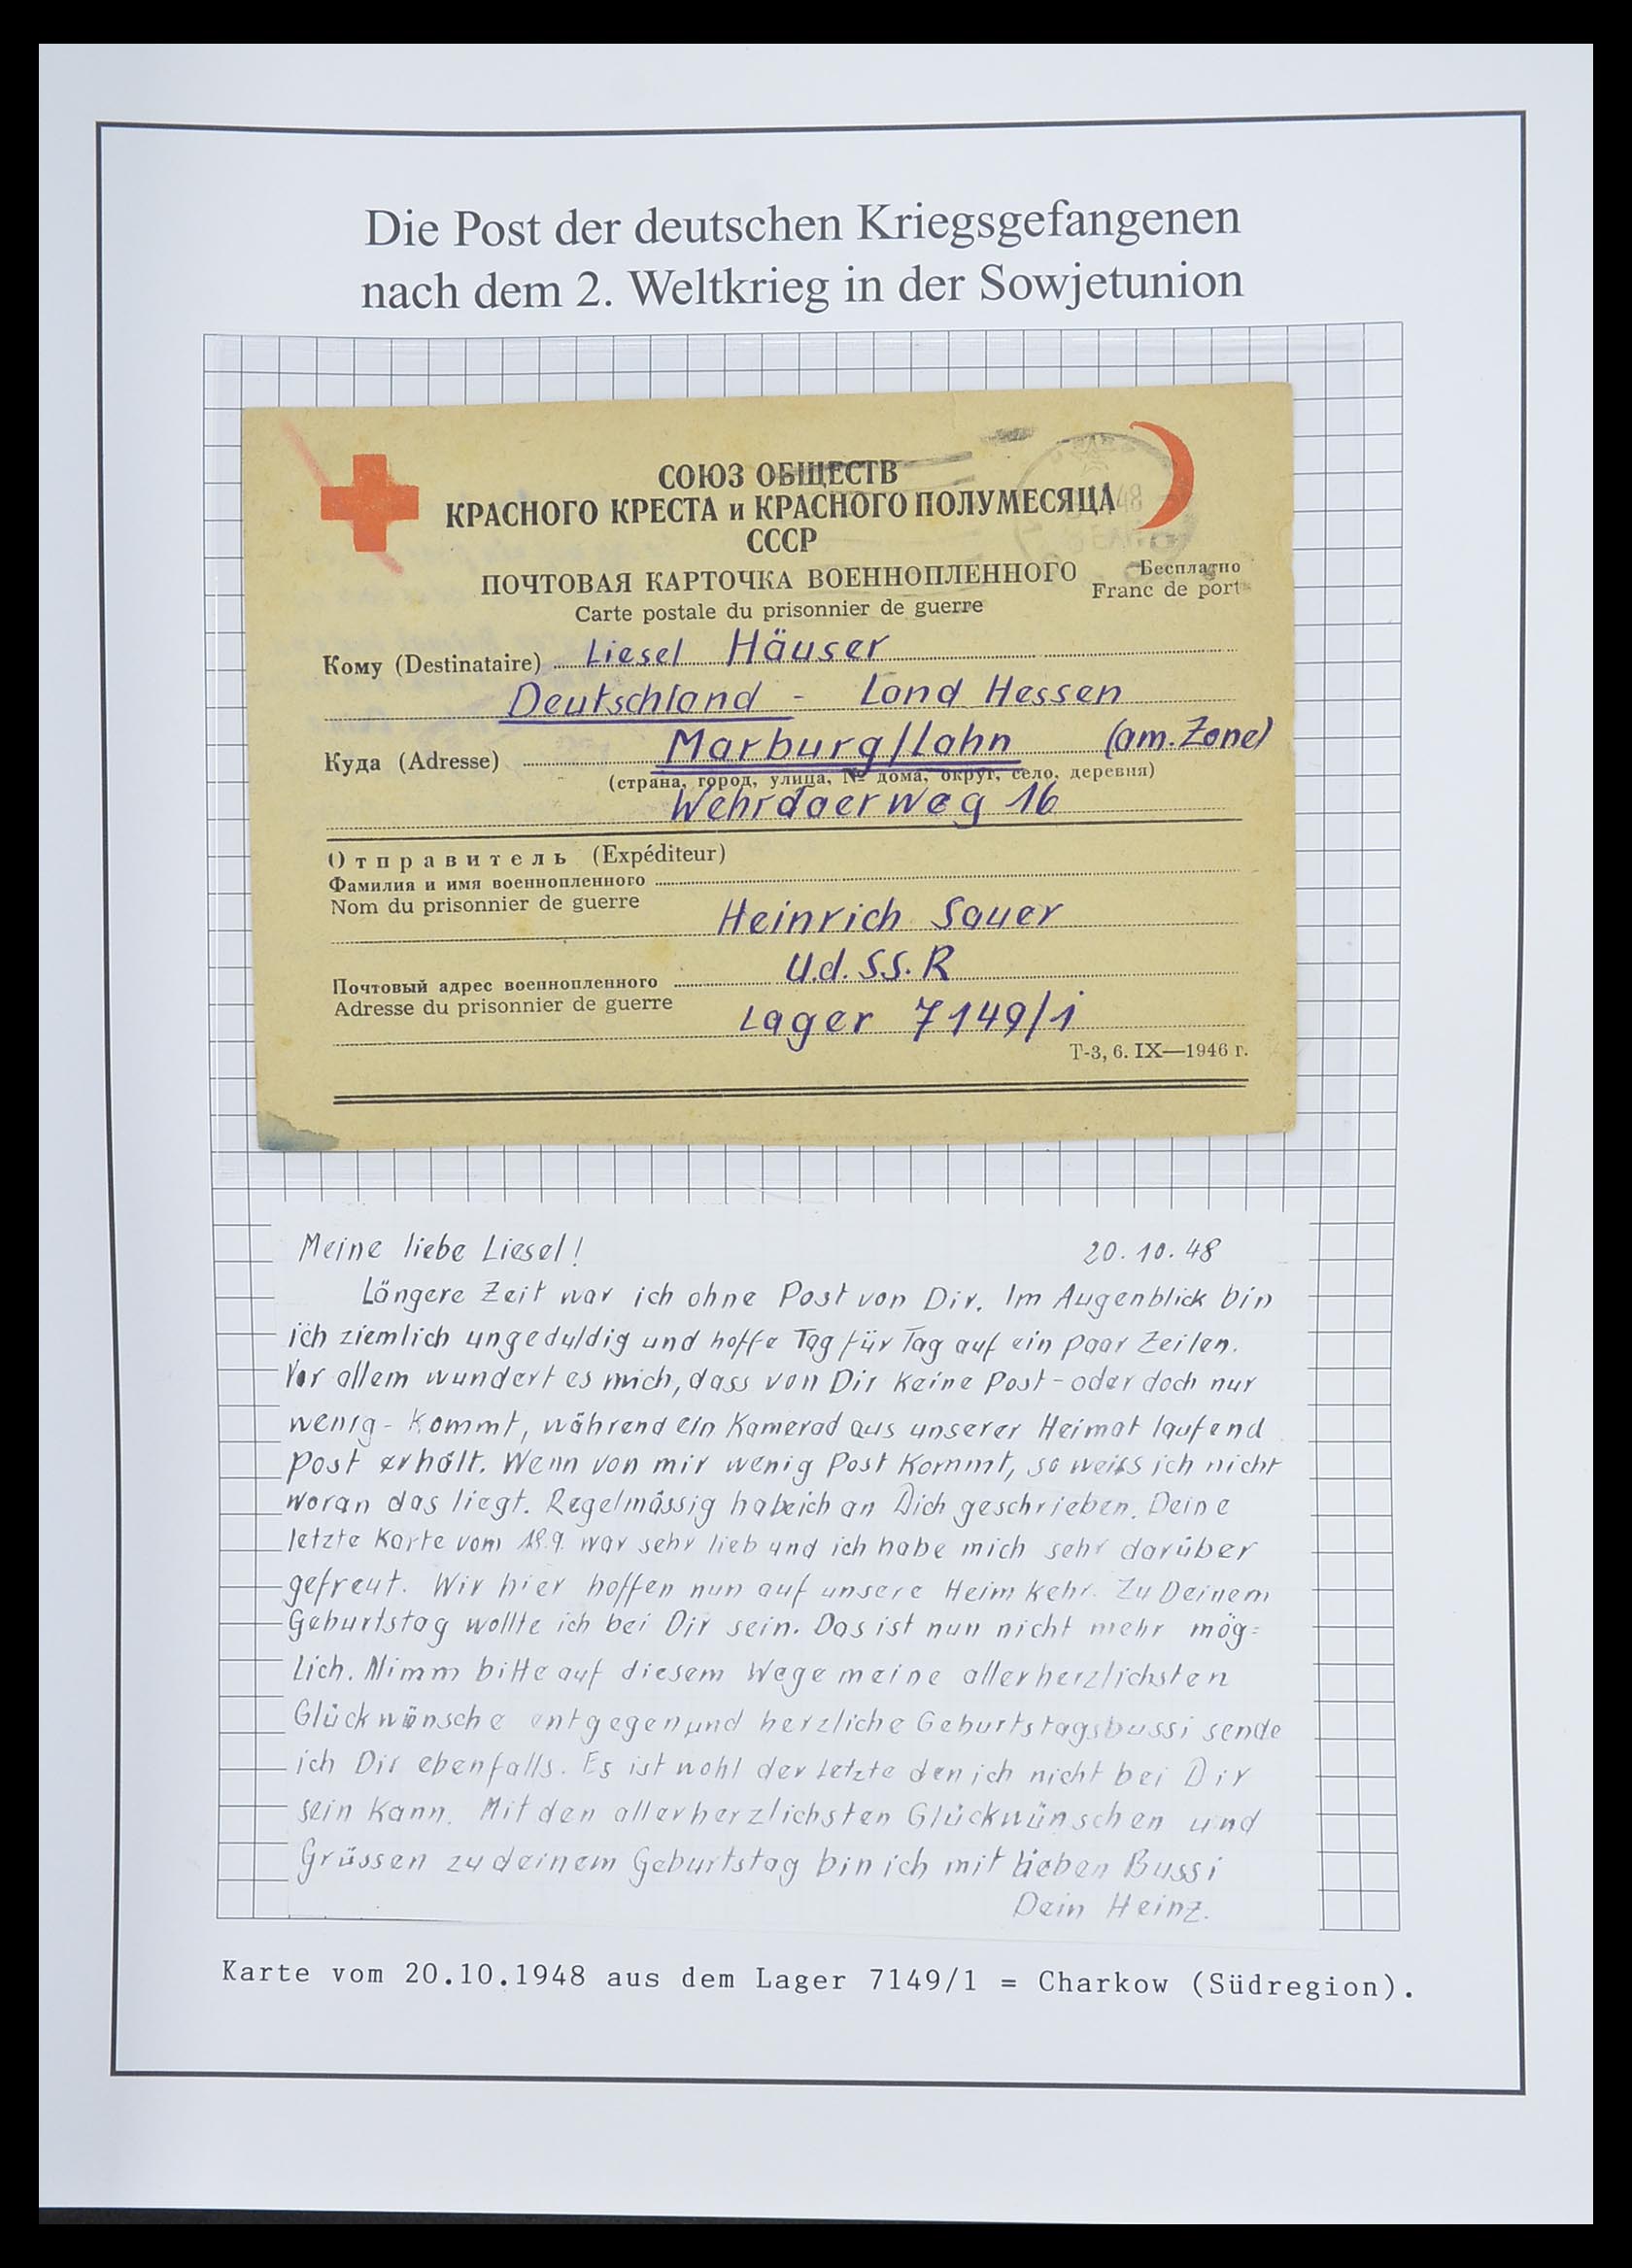 Die Post der deutschen Kriegsgefangenen
nach dem 2. Weltkrieg in der Sowjetunion
СОЮЗ ОБЩЕСТВ
КРАСНОГО КРЕСТА и КРАСНОГО ПОЛУМЕСЯЦА
СССР
ПОЧТОВАЯ КАРТОЧКА ВОЕННОПЛЕННОГО
Бесплатно
Carte postale du prisonnier de guerre
Franc de port
Кому (Destinataire) Liesel Häuser
Deutschland - Land Hessen
Куда (Adresse) Marburg/Lahn (am. Zone)
(страна, город, улица, № дома, округ, село, деревня)
Wehrdaerweg 16
Отправитель (Expéditeur)
Фамилия и имя военнопленного
Nom du prisonnier de guerre
Heinrich Sauer
Почтовый адрес военнопленного U.d.S.S.R
Adresse du prisonnier de guerre
Lager 7149/1
Т-3, 6. IX—1946 г.
Meine liebe Liesel! 20.10.48
Längere Zeit war ich ohne Post von Dir. Im Augenblick bin
ich ziemlich ungeduldig und hoffe Tag für Tag auf ein paar Zeilen.
Vor allem wundert es mich, dass von Dir keine Post - oder doch nur
wenig - kommt, während ein Kamerad aus unserer Heimat laufend
Post erhält. Wenn von mir wenig Post kommt, so weiss ich nicht
woran das liegt. Regelmässig habe ich an Dich geschrieben. Deine
letzte Karte vom 18.9. war sehr lieb und ich habe mich sehr darüber
gefreut. Wir hier hoffen nun auf unsere Heimkehr. Zu Deinem
Geburtstag wollte ich bei Dir sein. Das ist nun nicht mehr mög=
lich. Nimm bitte auf diesem Wege meine allerherzlichsten
Glückwünsche entgegen und herzliche Geburtstagsbussi sende
ich Dir ebenfalls. Es ist wohl der letzte den ich nicht bei Dir
sein kann. Mit den allerherzlichsten Glückwünschen und
Grüssen zu deinem Geburtstag bin ich mit lieben Bussi
Dein Heinz.
Karte vom 20.10.1948 aus dem Lager 7149/1 = Charkow (Südregion).